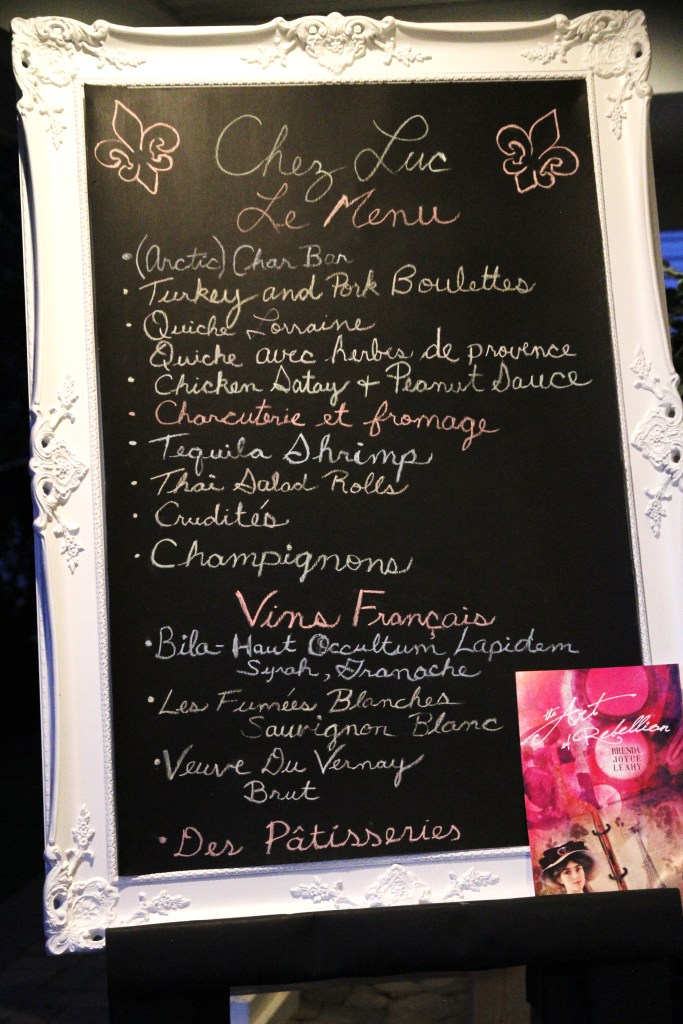 Chez Luc
Le Menu
• (Arctic) Char Bar
• Turkey and Pork Boulettes
• Quiche Lorraine
Quiche avec herbes de provence
• Chicken Satay + Peanut Sauce
• Charcuterie et fromage
• Tequila Shrimp
• Thai Salad Rolls
• Crudités
• Champignons
Vins Français
• Bila-Haut Occultum Lapidem
Syrah, Granache
• Les Fumées Blanches
Sauvignon Blanc
• Veuve Du Vernay
Brut
• Des Pâtisseries
the Art
of Rebellion
BRENDA
JOYCE
LEAHY